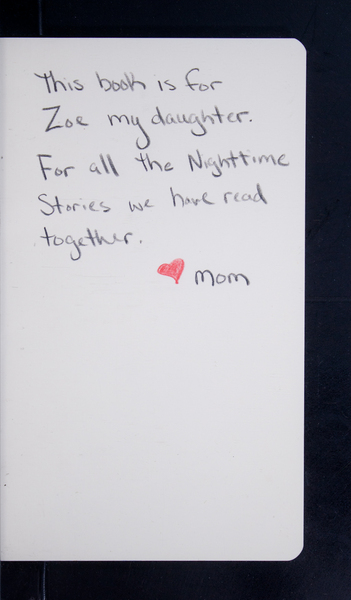 This book is for
Zoe my daughter.
For all the Nighttime
Stories we have read
together.
Mom